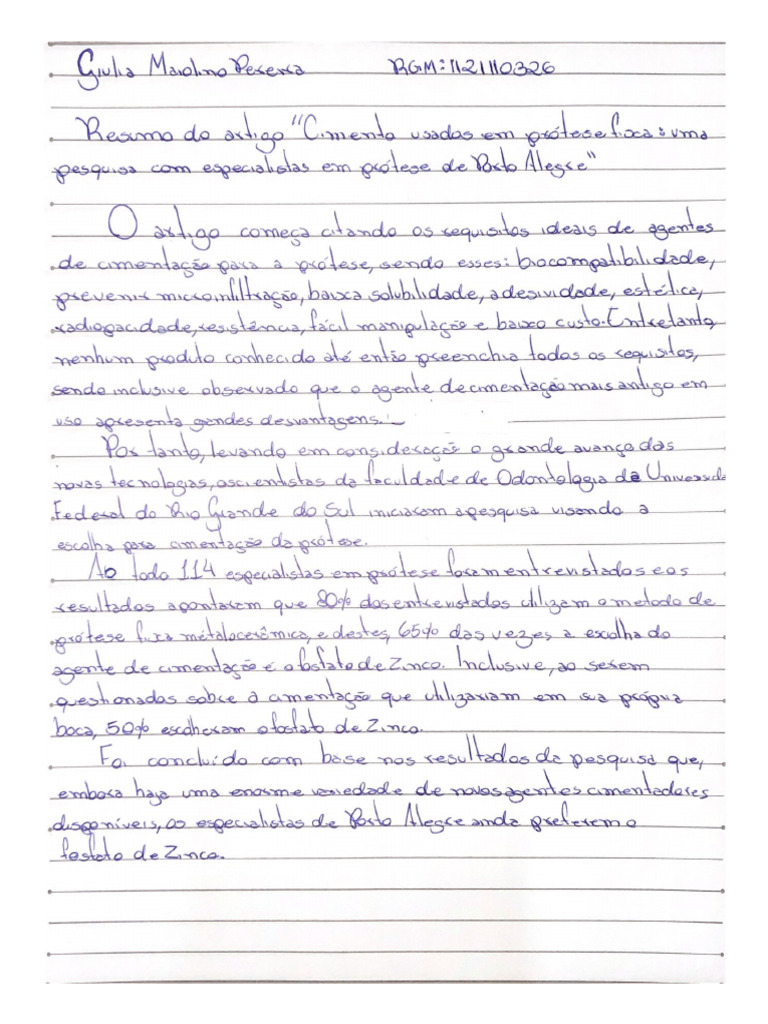 Giulia Marolino Pereira RGM: 11211110326
Resumo do artigo "Cimento usados em prótese fixa: uma
pesquisa com especialistas em prótese de Porto Alegre"
O artigo começa citando os requisitos ideais de agentes
de cimentação para a prótese, sendo esses: biocompatibilidade,
prevenir microinfiltração, baixa solubilidade, adesividade, estética,
radiopacidade, resistência, fácil manipulação e baixo custo. Entretanto,
nenhum produto conhecido até então preenchia todos os requisitos,
sendo inclusive observado que o agente de cimentação mais antigo em
uso apresenta grandes desvantagens.
Por tanto, levando em consideração o grande avanço das
novas tecnologias, os cientistas da faculdade de Odontologia da Universida
Federal do Rio Grande do Sul iniciaram a pesquisa visando a
escolha para cimentação da prótese.
Ao todo 114 especialistas em prótese foram entrevistados e os
resultados apontaram que 80% dos entrevistados utilizam o metodo de
prótese fixa metalocerâmica, e destes, 65% das vezes a escolha do
agente de cimentação é o fosfato de Zinco. Inclusive, ao serem
questionados sobre a cimentação que utilizariam em sua própria
boca, 50% escolheram o fosfato de Zinco.
Foi concluído com base nos resultados da pesquisa que,
embora haja uma enorme variedade de novos agentes cimentadores
disponíveis, os especialistas de Porto Alegre ainda preferem o
fosfato de Zinco.